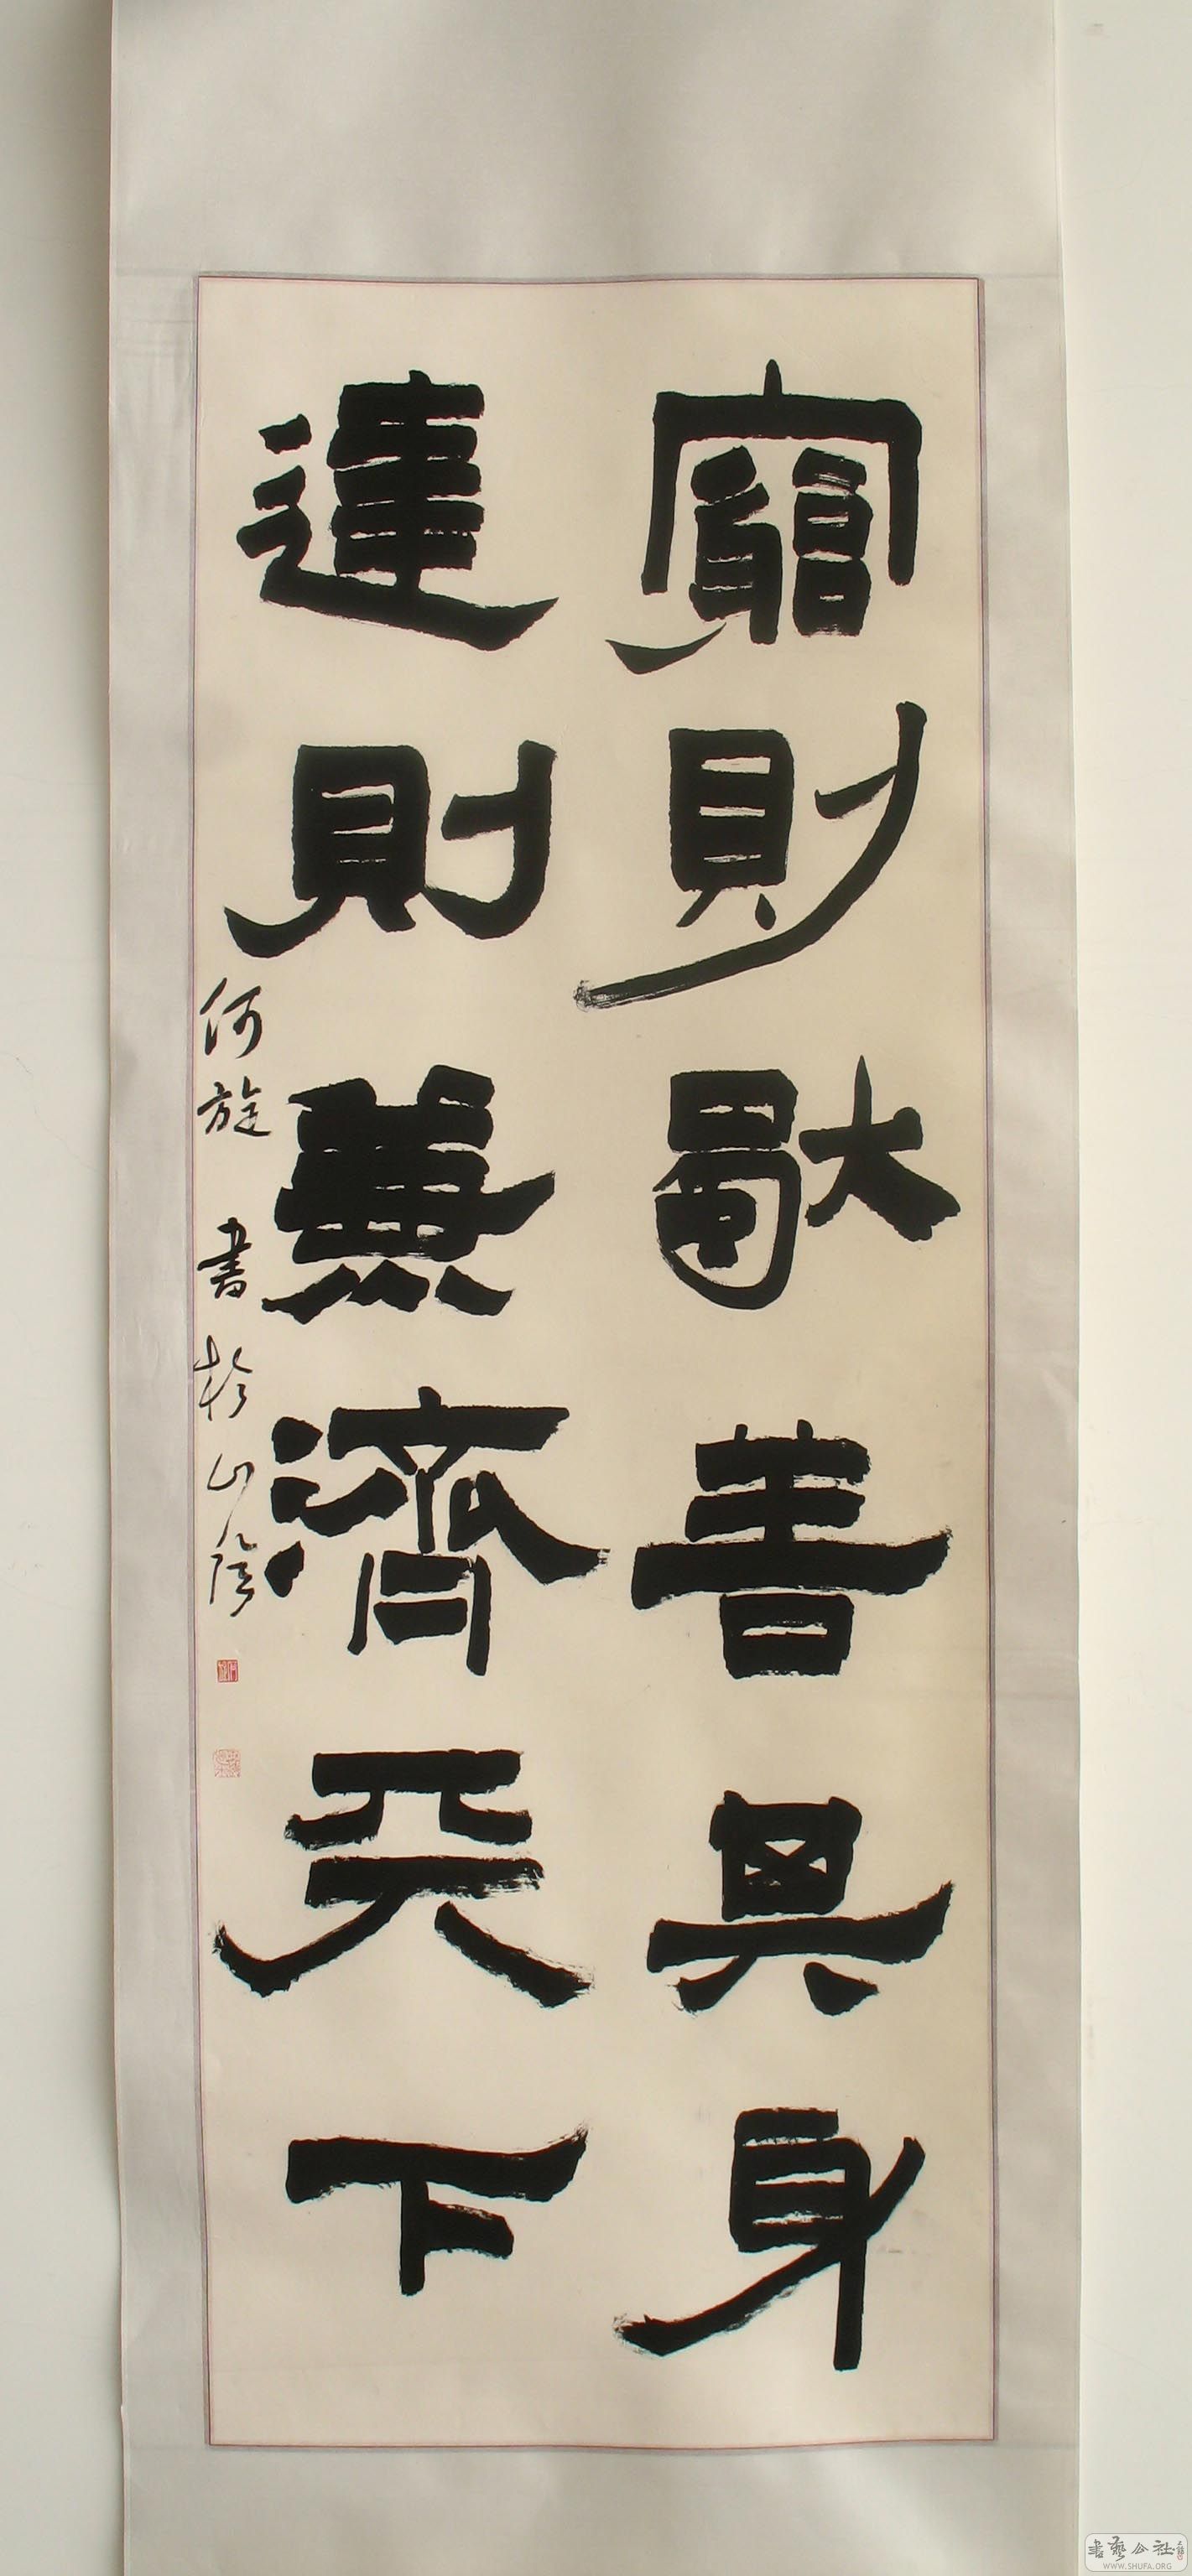 窮則獨善其身
達則兼濟天下
何旋 書於山陰
書藝公社
WWW.SHUFA.ORG